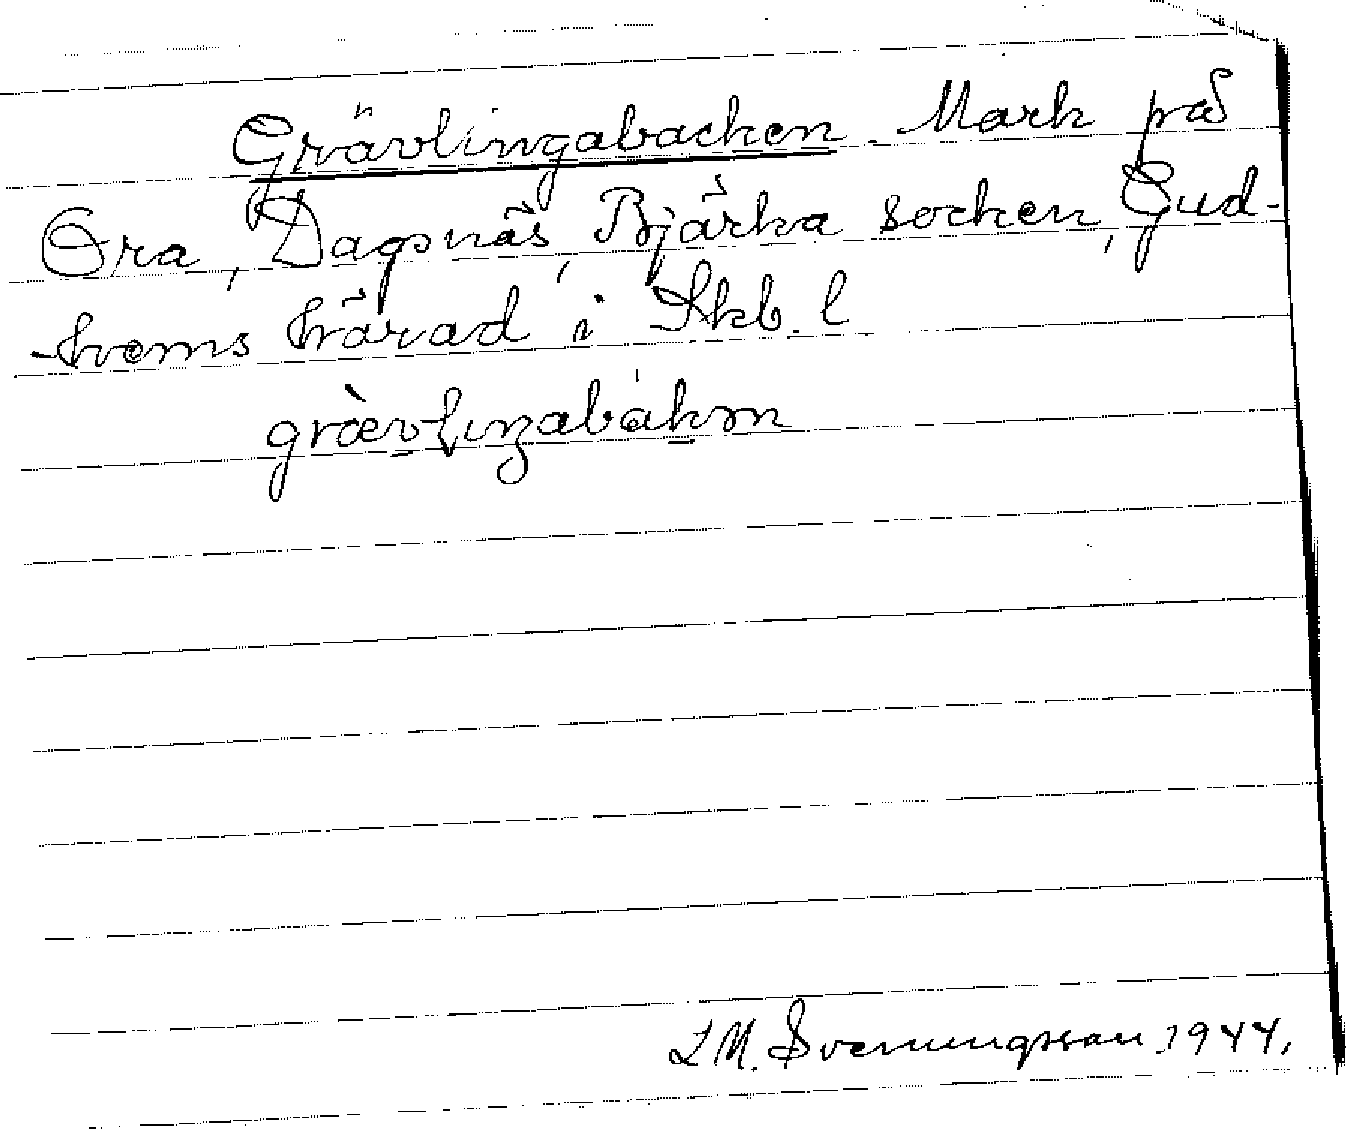 Grävlingabacken. Mark på
Ora, Dagsnäs, Bjärka socken, Gud-
hems härad i Skb. l
grævlingabakən
L M. Svenungsson 1944.